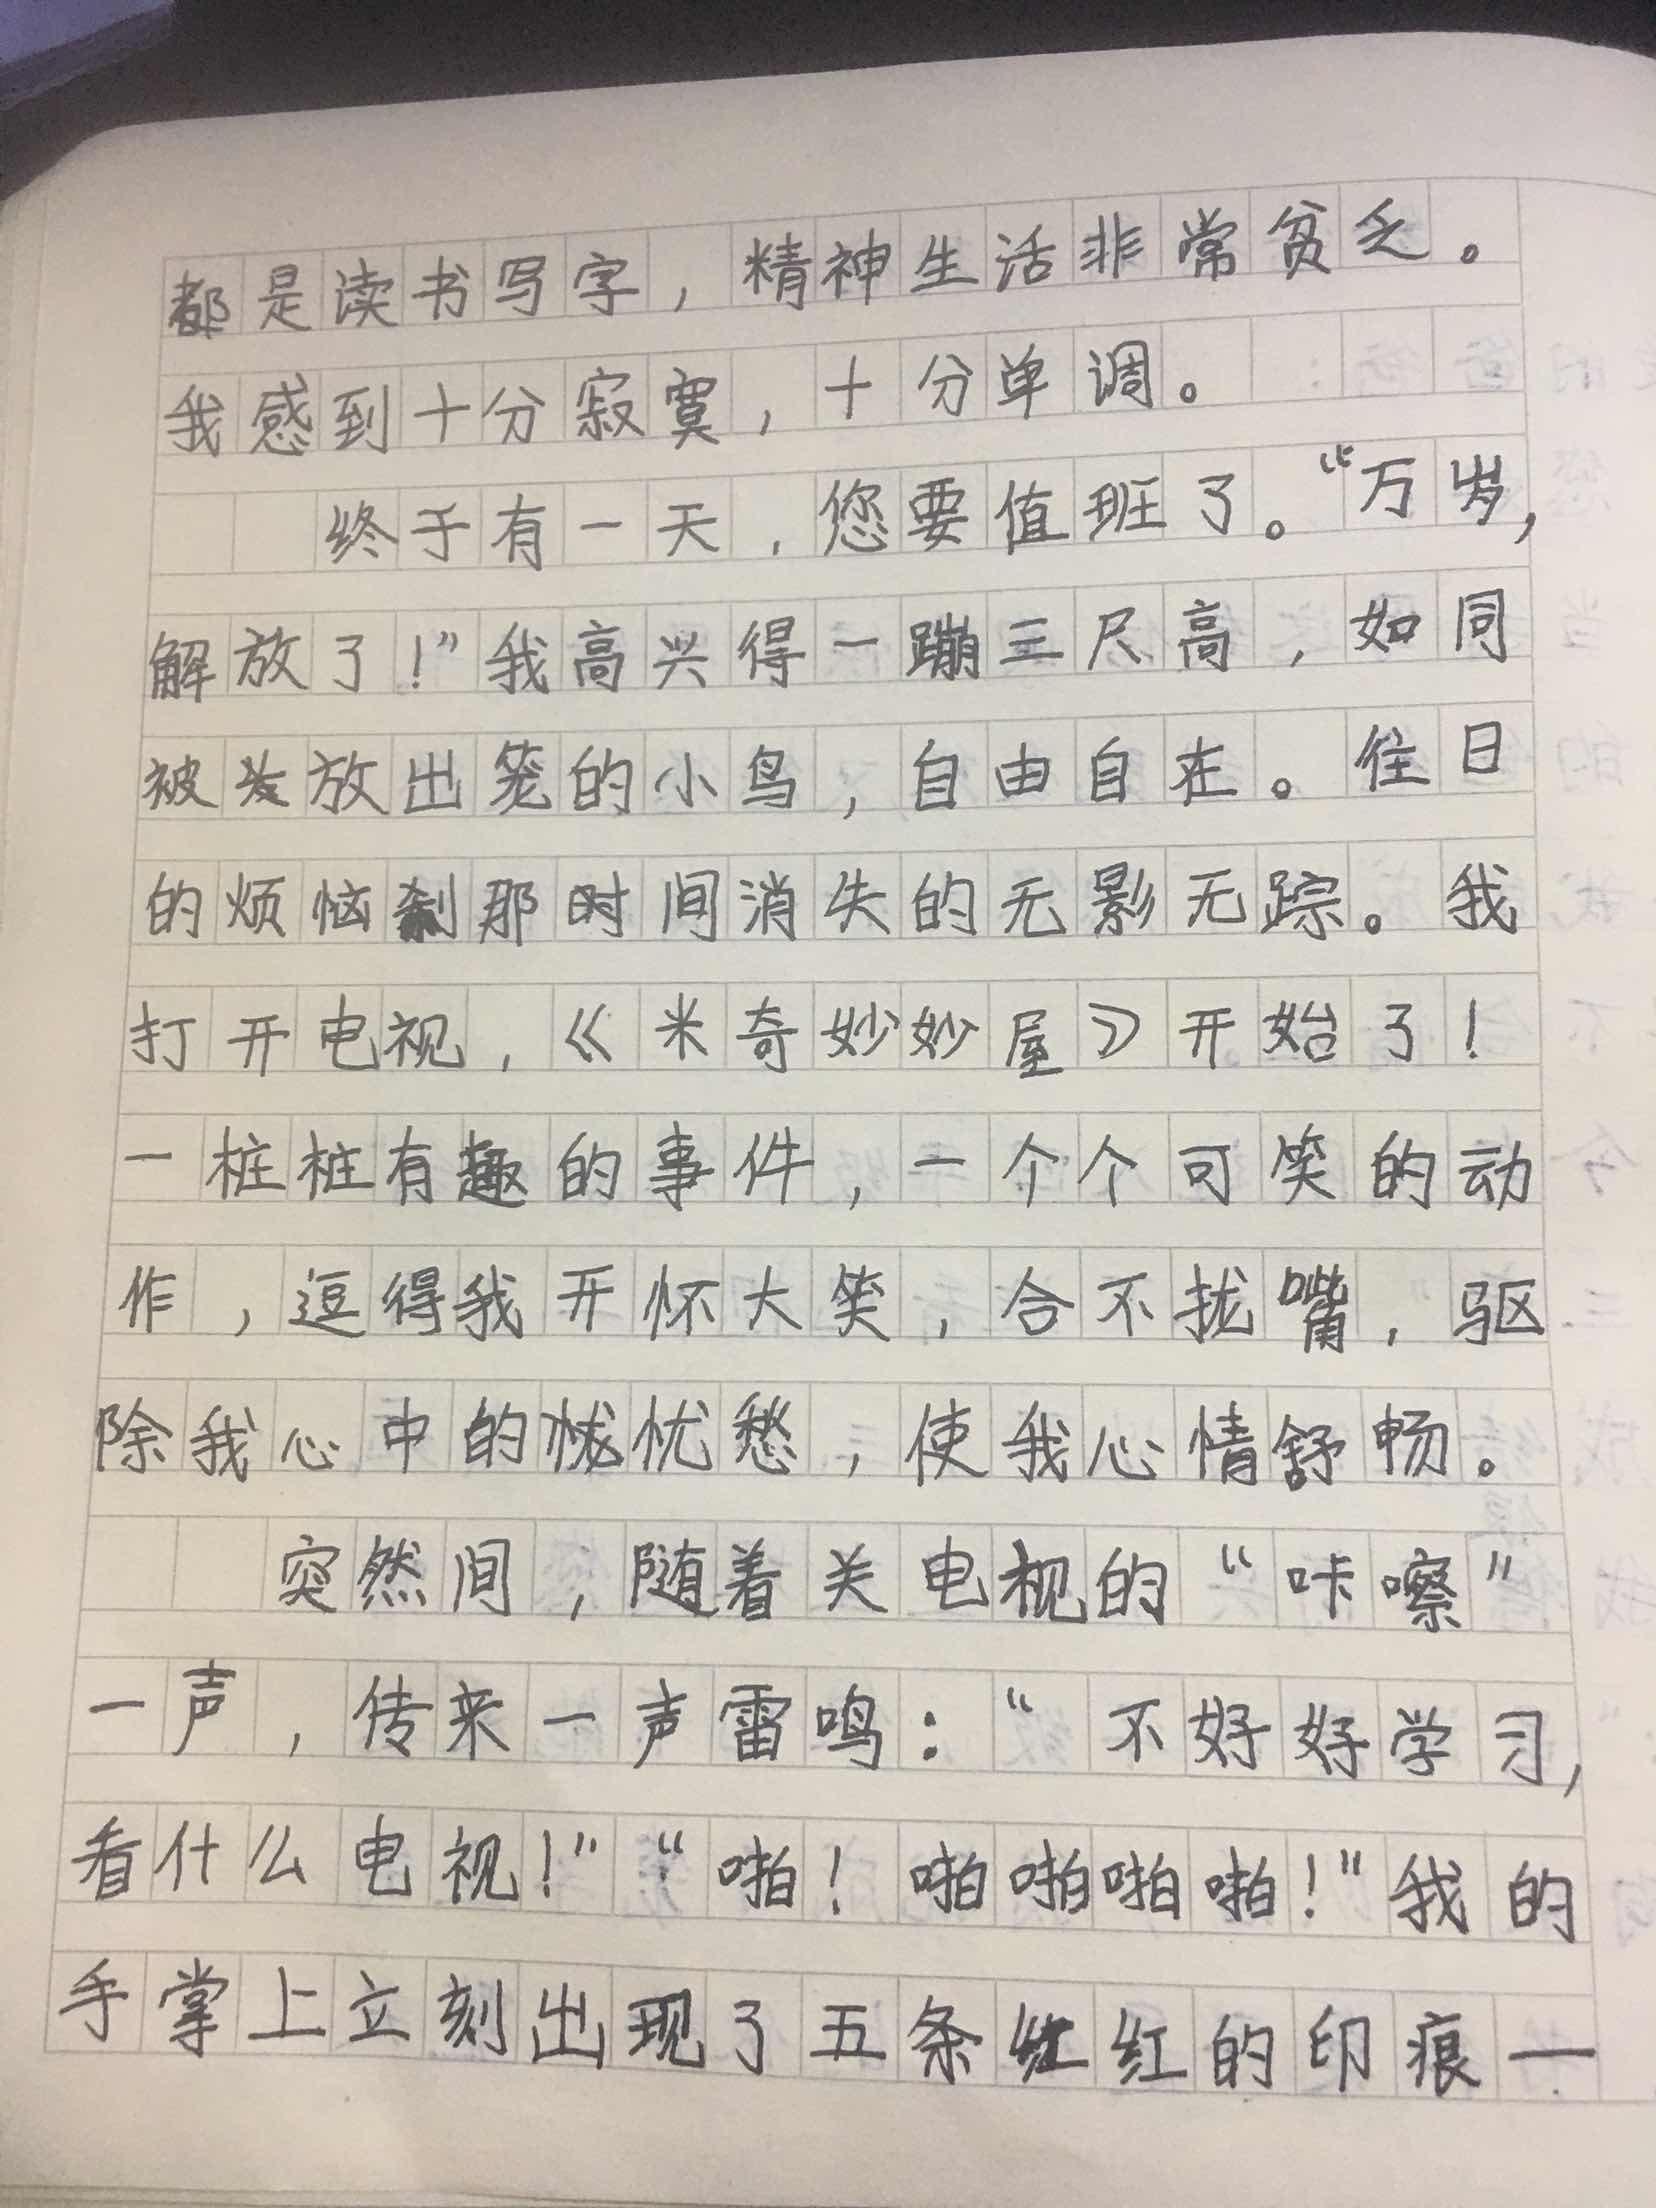 都是读书写字，精神生活非常贫乏。
我感到十分寂寞，十分单调。
终于有一天，您要值班了。“万岁，
解放了！”我高兴得一蹦三尺高，如同
被放出笼的小鸟，自由自在。往日
的烦恼刹那时间消失的无影无踪。我
打开电视，《米奇妙妙屋》开始了！
一桩桩有趣的事件，一个个可笑的动
作，逗得我开怀大笑，合不拢嘴，驱
除我心中的忧愁，使我心情舒畅。
突然间，随着关电视的“咔嚓”
一声，传来一声雷鸣：“不好好学习，
看什么电视！”“啪！啪啪啪啪！”我的
手掌上立刻出现了五条红红的印痕—